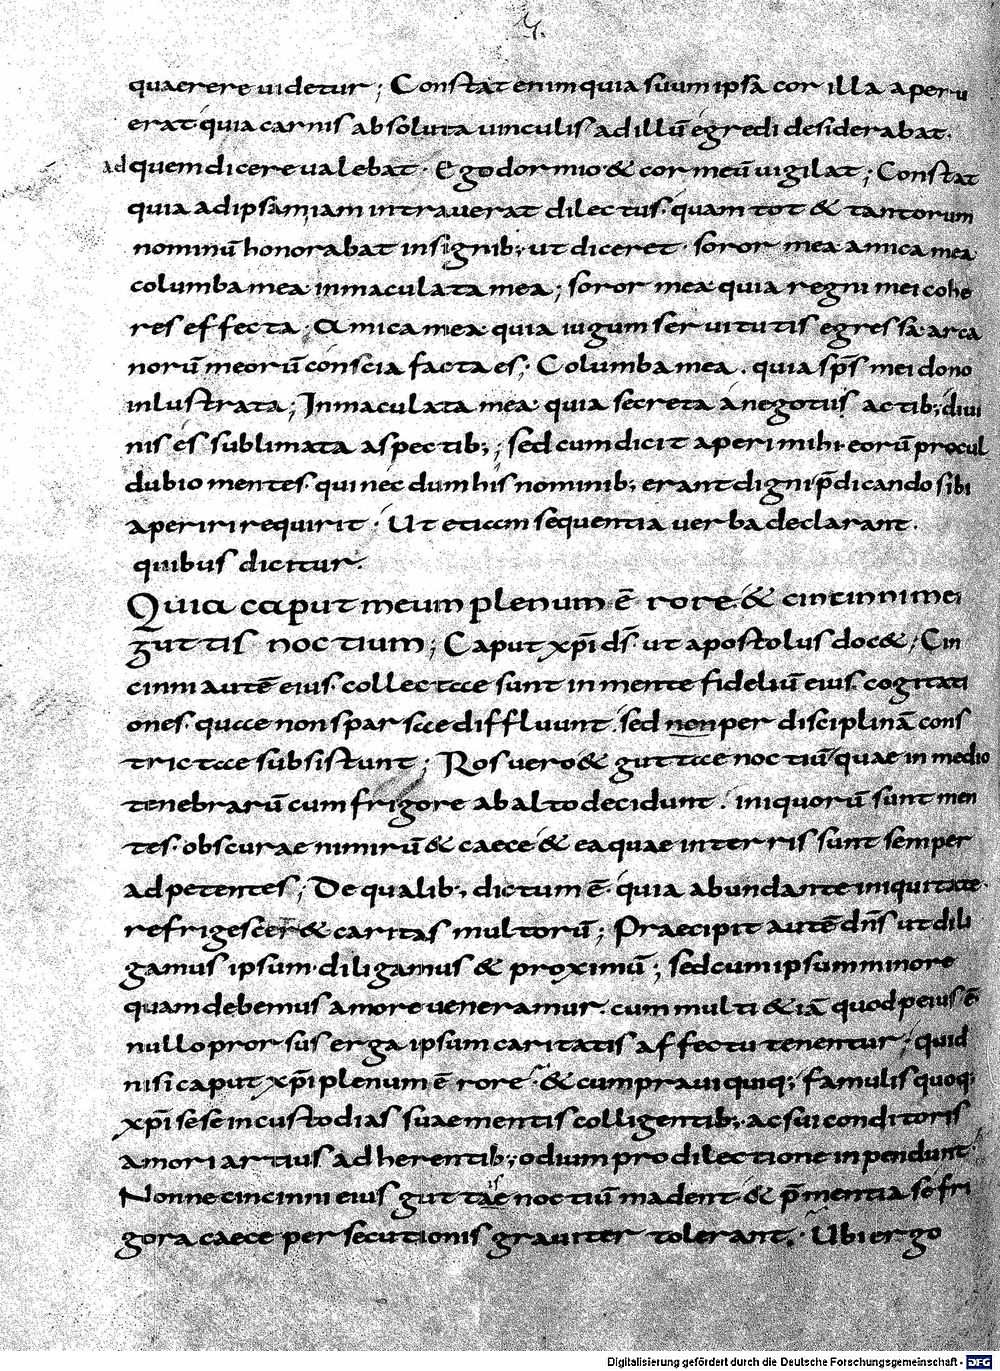 quaerere uidetur; Constat enim quia suum ipsa cor illa aperu
erat quia carnis absoluta uinculis ad illū egredi desiderabat.
ad quem dicere ualebat. Ego dormio & cor meū uigilat; Constat
quia ad ipsam iam intrauerat dilectus. quam tot & tantorum
nominū honorabat insignib; ut diceret. soror mea amica mea
columba mea inmaculata mea; soror mea quia regni mei cohe
res effecta. Amica mea quia iugum seruitutis egressa arca
norū meorū conscia facta es; Columba mea. quia sp̄s mei dono
inlustrata; Inmaculata mea quia secreta a negotiis actib; diui
nis es sublimata aspectib;; sed cum dicit aperi mihi eorū procul
dubio mentes qui nec dum his nominib; erant digni p̄dicando sibi
aperiri requirit. Ut etiam sequentia uerba declarant.
quibus dicitur.
Quia caput meum plenum ē rore & cincinni mei
guttis noctium; Caput xp̄i ds̄ ut apostolus doc&; Cin
cinni autē eius collectae sunt in mente fideliū eius. cogitati
ones. quae non sparsae diffluunt. sed non per disciplinā cons
trictae subsistunt; Ros uero & guttae noctiū quae in medio
tenebrarū cum frigore ab alto decidunt. iniquorū sunt men
tes obscurae nimirū & caece & ea quae in terris sunt semper
adpetentes; De qualib; dictum ē quia abundante iniquitate
refrigescet & caritas multorū; Praecipit autē dn̄s ut dili
gamus ipsum. diligamus & proximū; sed cum ipsum minore
quam debemus amore ueneramur. cum multi &iā quod peius ē
nullo prorsus erga ipsum caritatis affectu tenentur; quid
nisi caput xp̄i plenum ē rore & cum praui quiq; famulis quoq;
xp̄i sese in custodias suae mentis colligentib; ac sui conditoris
amori artius adherentib; odium pro dilectione inpendunt
Nonne cincinni eius guttae noctiū madent & p̄mentia se fri
gora caece persecutionis grauiter tolerant. Ubi ergo
Digitalisierung gefördert durch die Deutsche Forschungsgemeinschaft - DFG